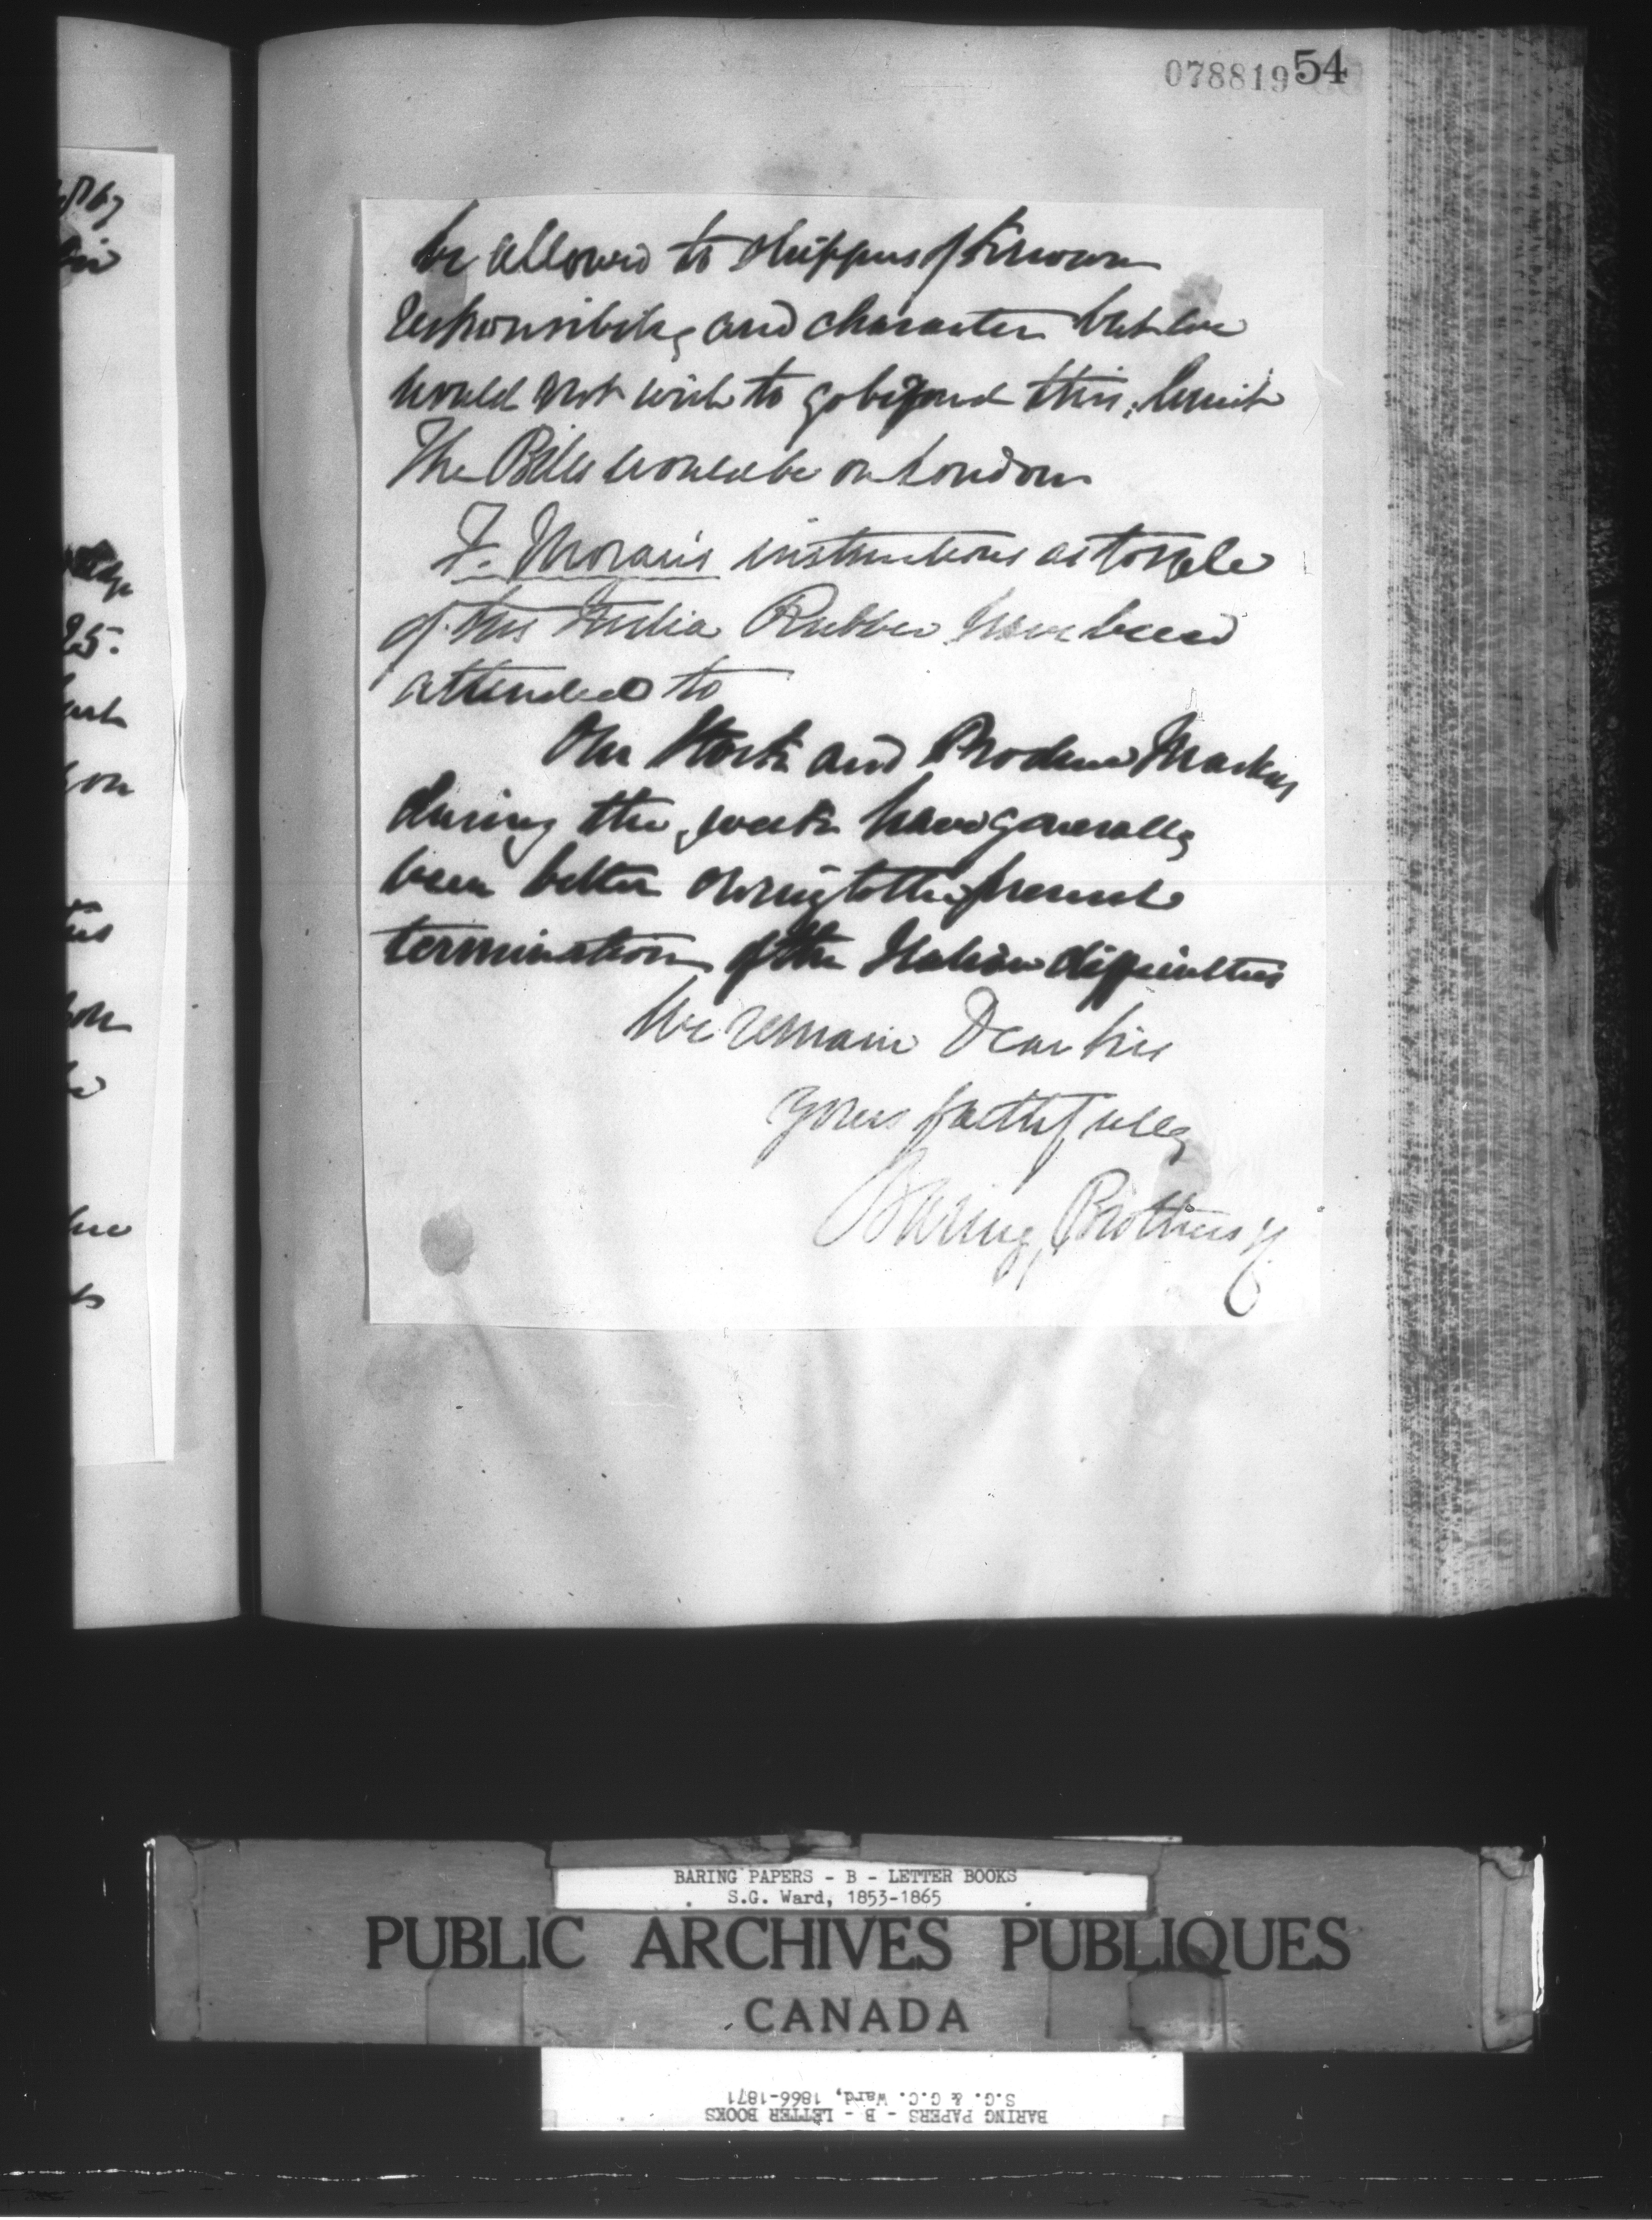 078819 54
be allowed to shippers of known
responsibility and character but we
would not wish to go beyond this limit
The Bills would be on London
F. Moran's instructions as to sale
of his India Rubber have been
attended to
Our Stock and Produce Markets
during the week have generally
been better owing to the present
termination of the Italian difficulties
We remain Dear Sir
Yours faithfully
Baring Brothers
25.
BARING PAPERS - B - LETTER BOOKS
S.G. Ward, 1853-1865
PUBLIC ARCHIVES PUBLIQUES
CANADA
BARING PAPERS - B - LETTER BOOKS
S.G. & G.C. Ward, 1866-1871